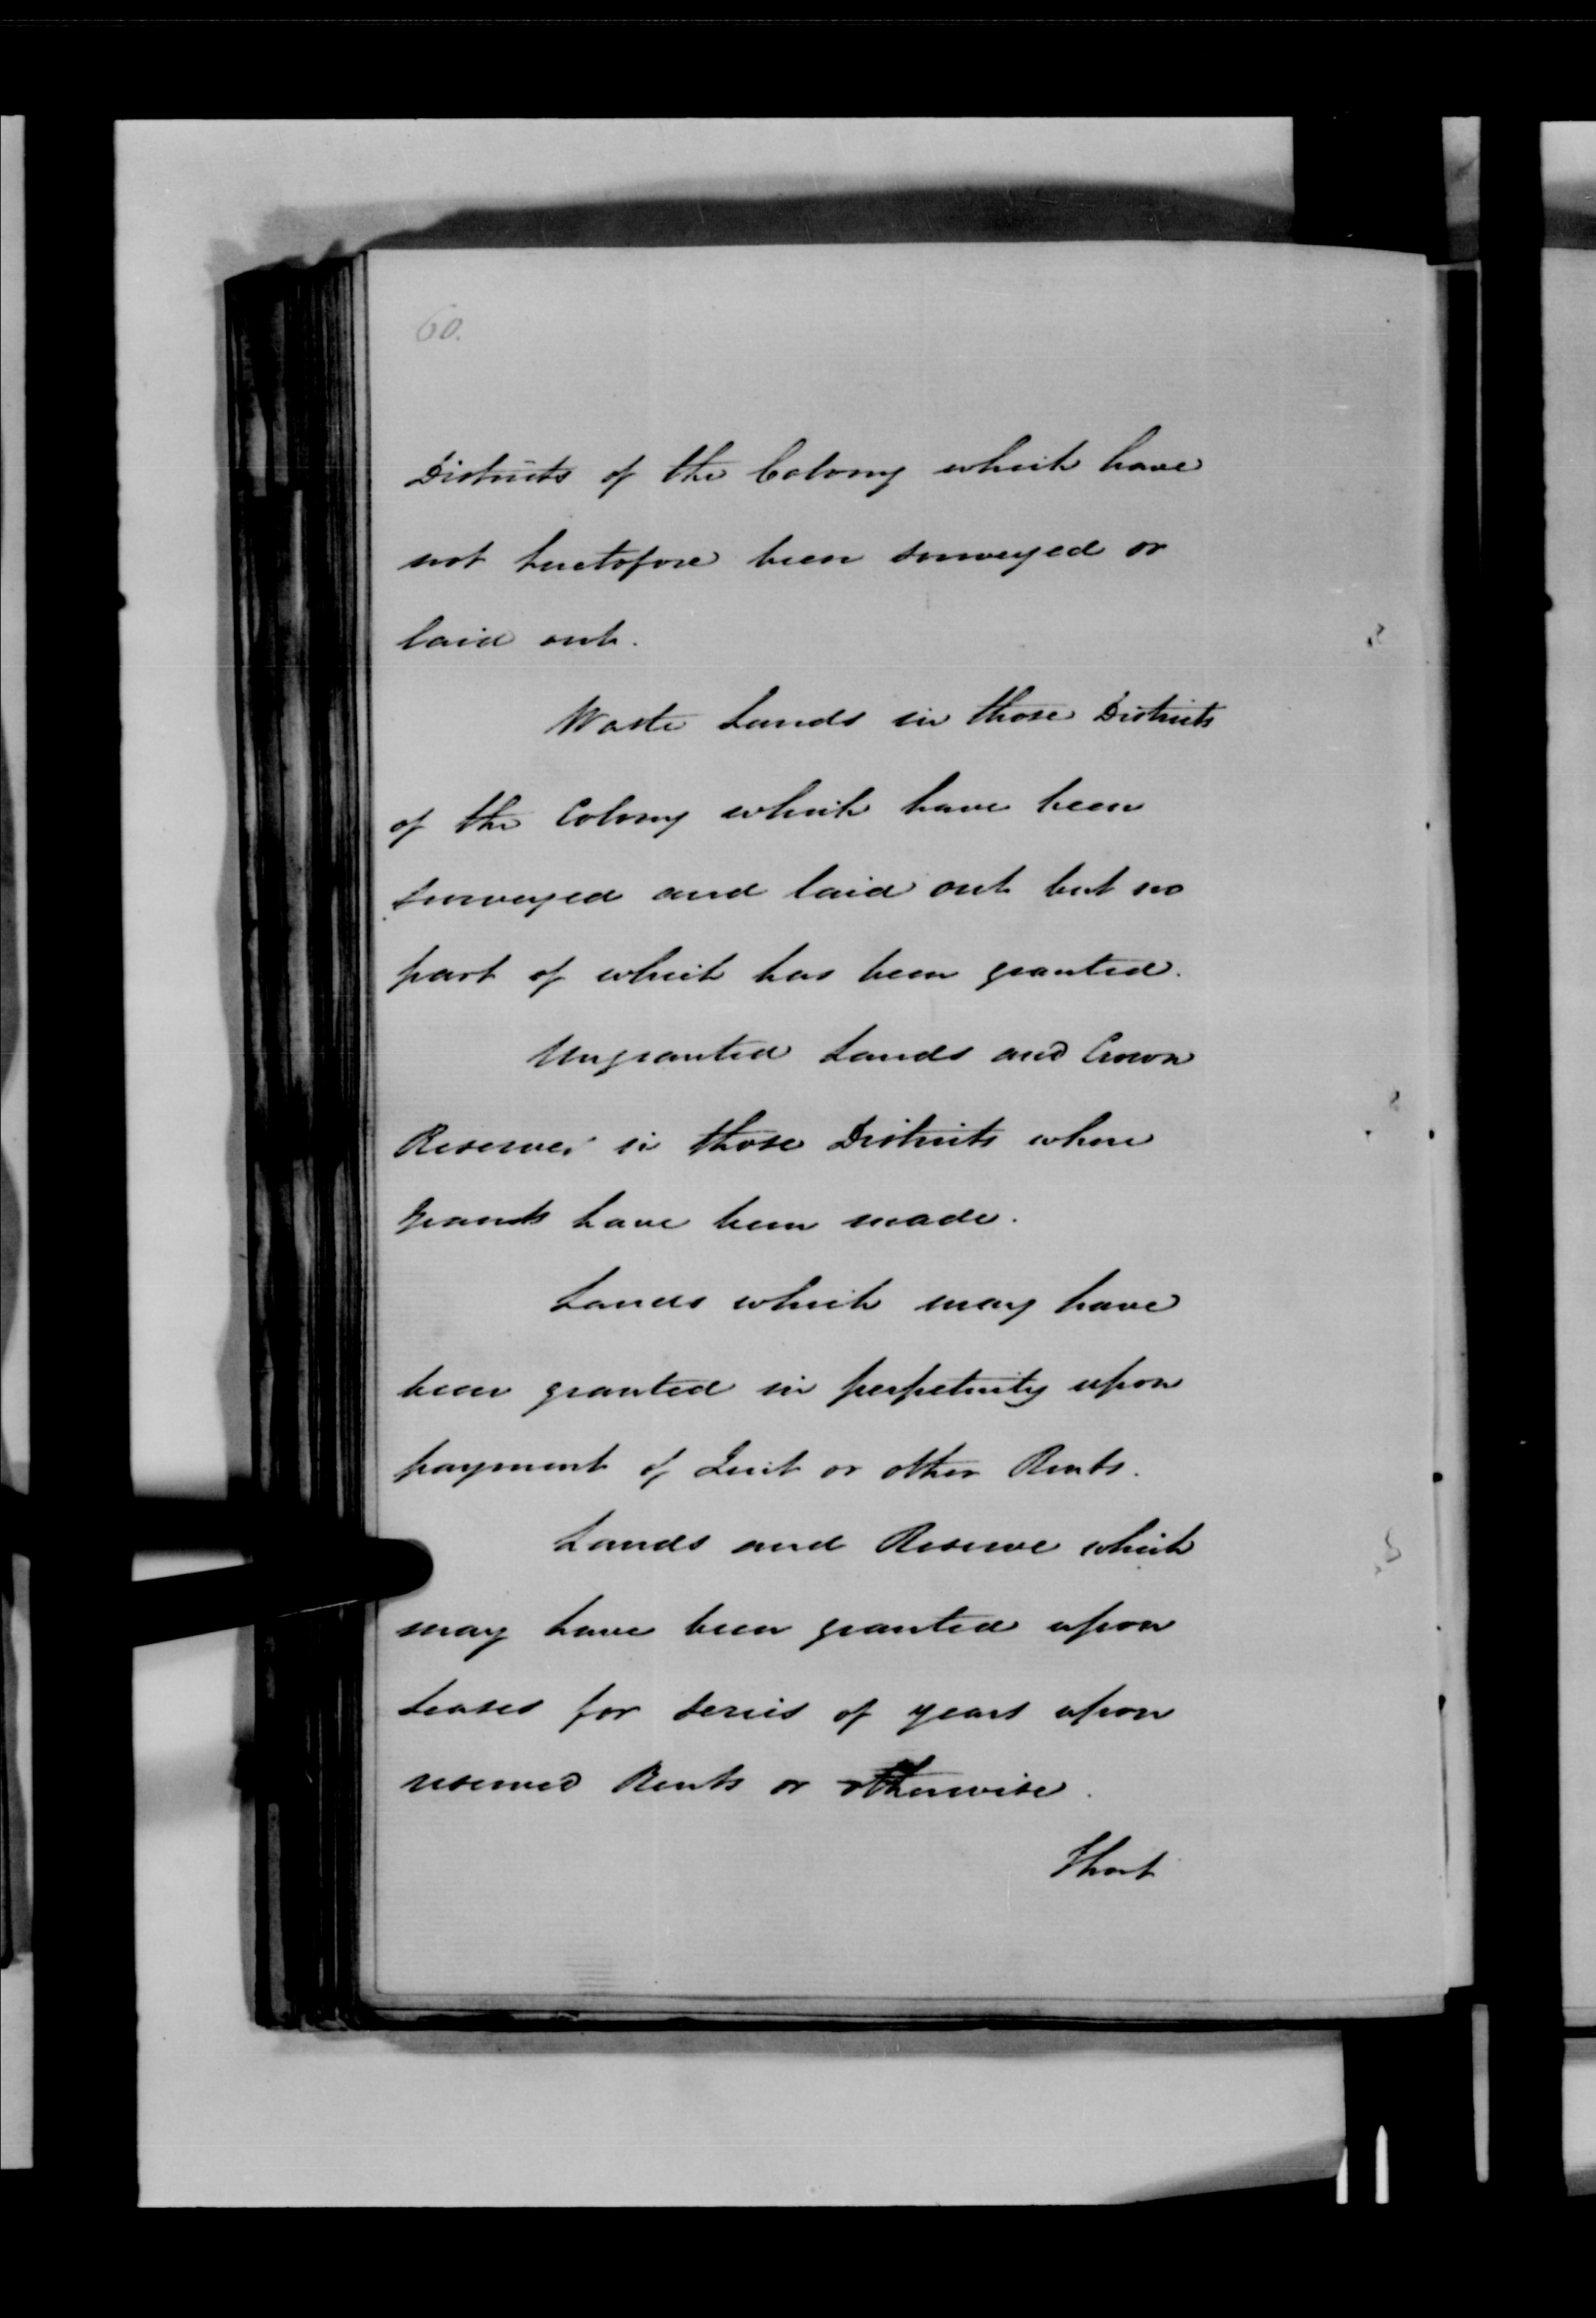 60.
Districts of the Colony which have
not heretofore been surveyed or
laid out.
Waste Lands in those Districts
of the Colony which have been
surveyed and laid out but no
part of which has been granted.
Ungranted Lands and Crown
Reserves in those Districts where
Grants have been made.
Lands which may have
been granted in perpetuity upon
payment of Quit or other Rents.
Lands and Reserve which
may have been granted upon
Leases for series of years upon
reserved Rents or otherwise.
That